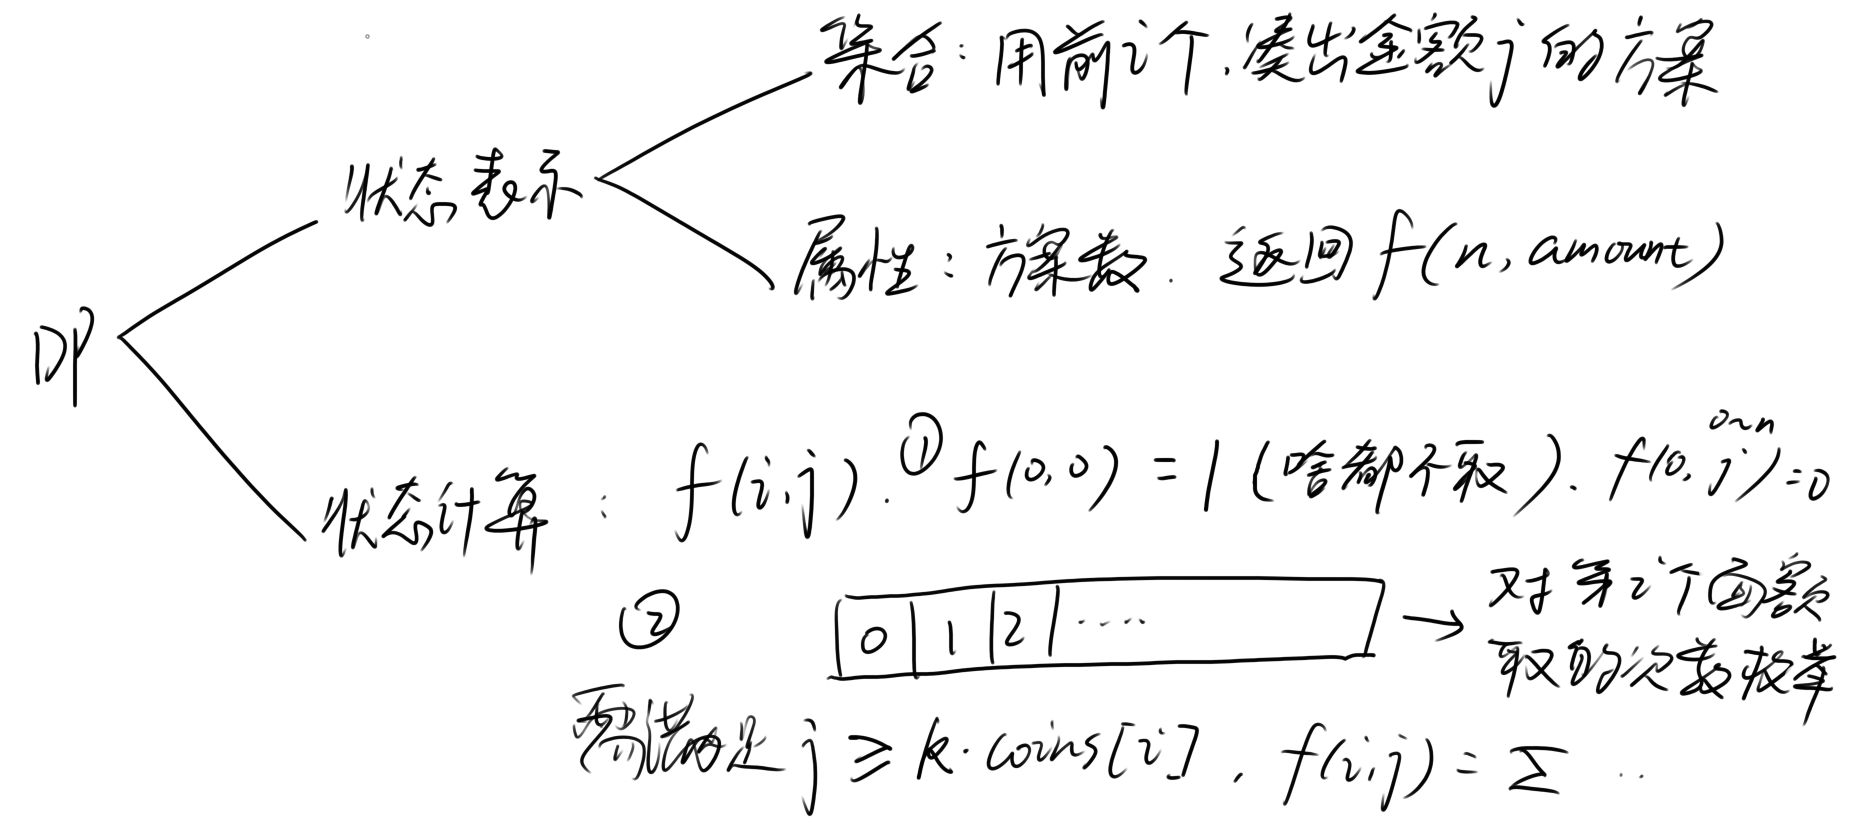 集合：用前i个，凑出金额j的方案
状态表示
属性：方案数. 返回 f(n, amount)
DP
状态计算：f(i,j). ① f(0,0) = 1 (啥都不取). f(0, j) = 0
0~n
②
0 1 2 ·····
→ 对第i个面额
取的次数枚举
需满足 j ≥ k·coins[i], f(i,j) = Σ ..